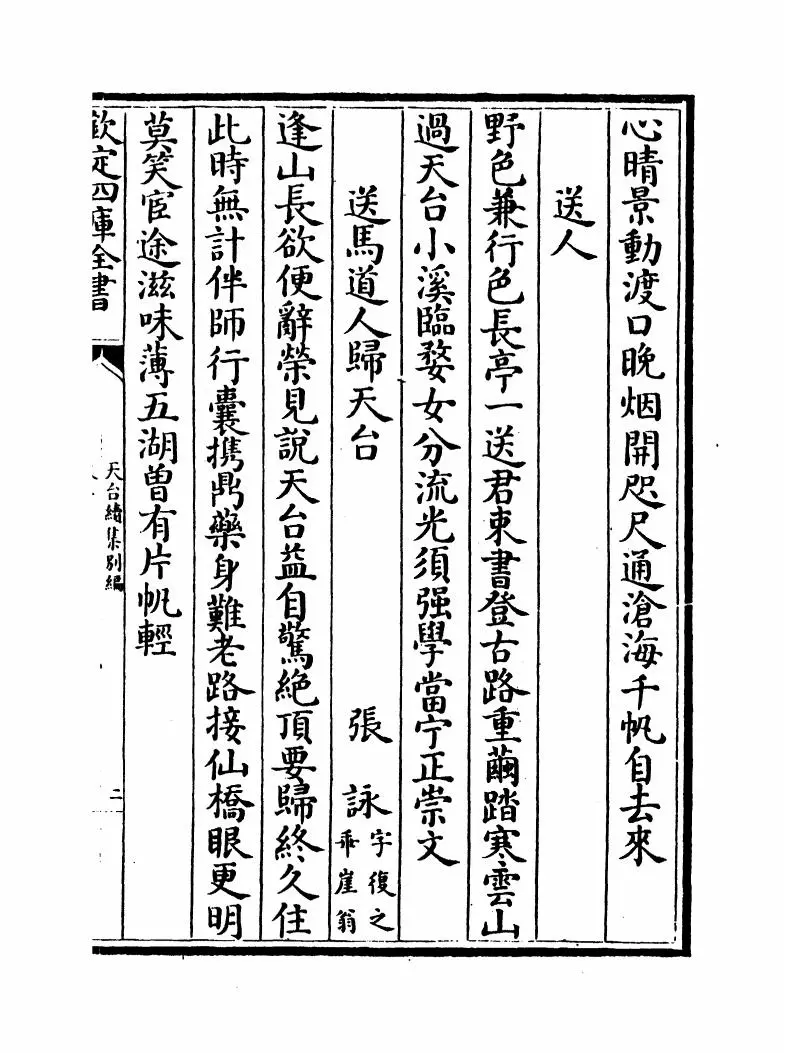 心晴景動渡口晚烟開咫尺通滄海千帆自去來
送人
野色兼行色長亭一送君束書登古路重繭踏寒雲山
過天台小溪臨婺女分流光須强學當宁正崇文
送馬道人歸天台　張　詠字復之
乖崖翁
逢山長欲便辭榮見說天台益自驚絶頂要歸終久住
此時無計伴師行囊携鼎藥身難老路接仙橋眼更明
莫笑宦途滋味薄五湖曽有片帆輕
欽定四庫全書
天台續集别編
二